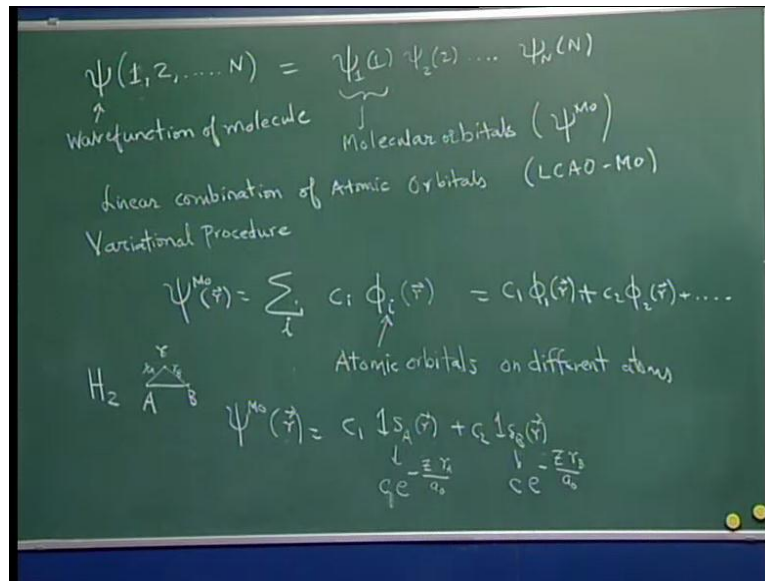 ψ(1,2,.....N) = ψ₁(1) ψ₂(2) .... ψ_N(N)
↑
Wavefunction of molecule
Molecular orbitals (ψ^Mo)
Linear combination of Atomic Orbitals (LCAO-MO)
Variational Procedure
ψ^Mo(r⃗) = Σ_i c_i ϕ_i(r⃗) = c₁ϕ₁(r⃗) + c₂ϕ₂(r⃗) + ....
Atomic orbitals on different atoms
r
r_A r_B
H₂ A B
ψ^Mo(r⃗) = c₁ 1s_A(r⃗) + c₂ 1s_B(r⃗)
↓ ↓
ce^{-Z r_A/a₀} ce^{-Z r_B/a₀}